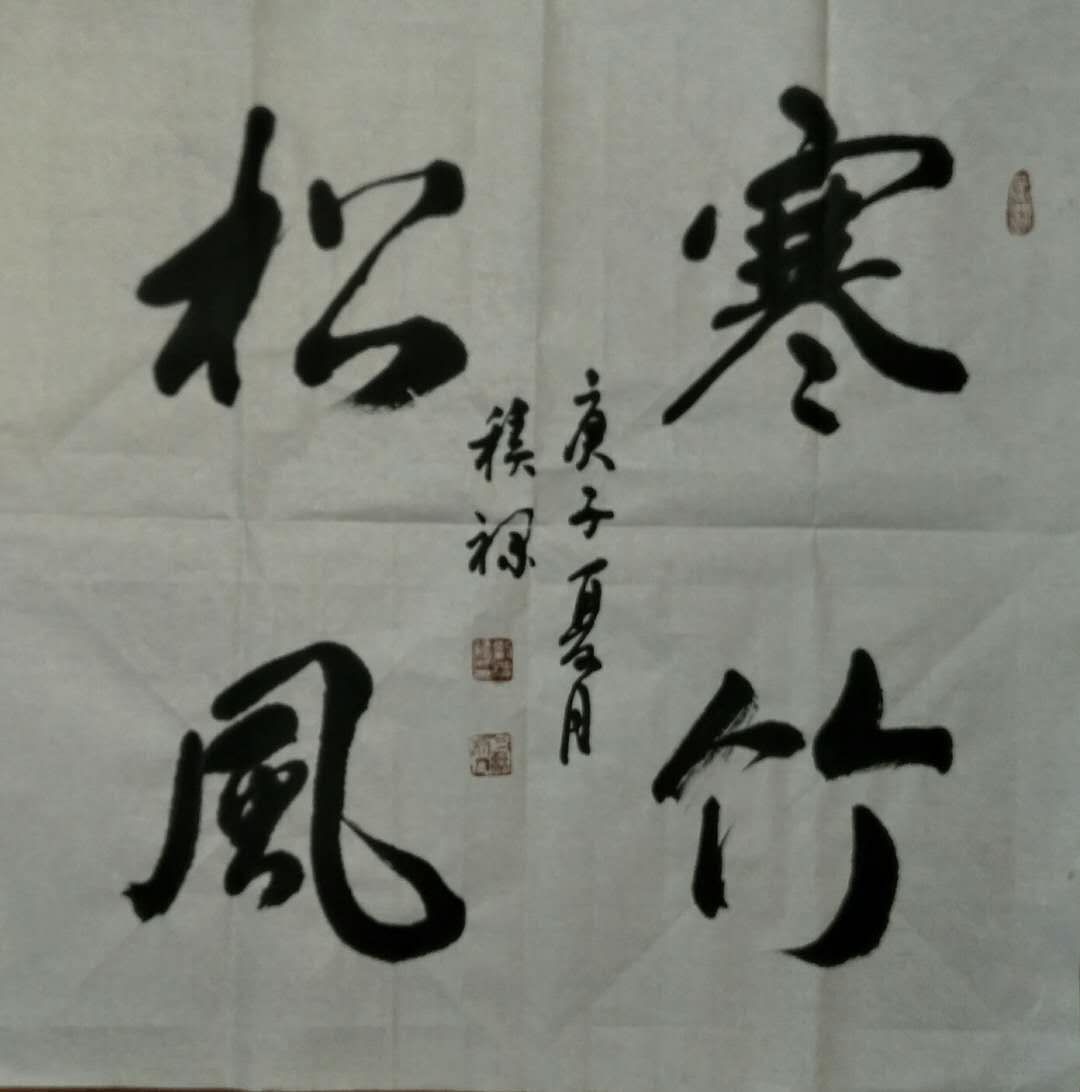 寒竹
松風
庚子夏月
積祿